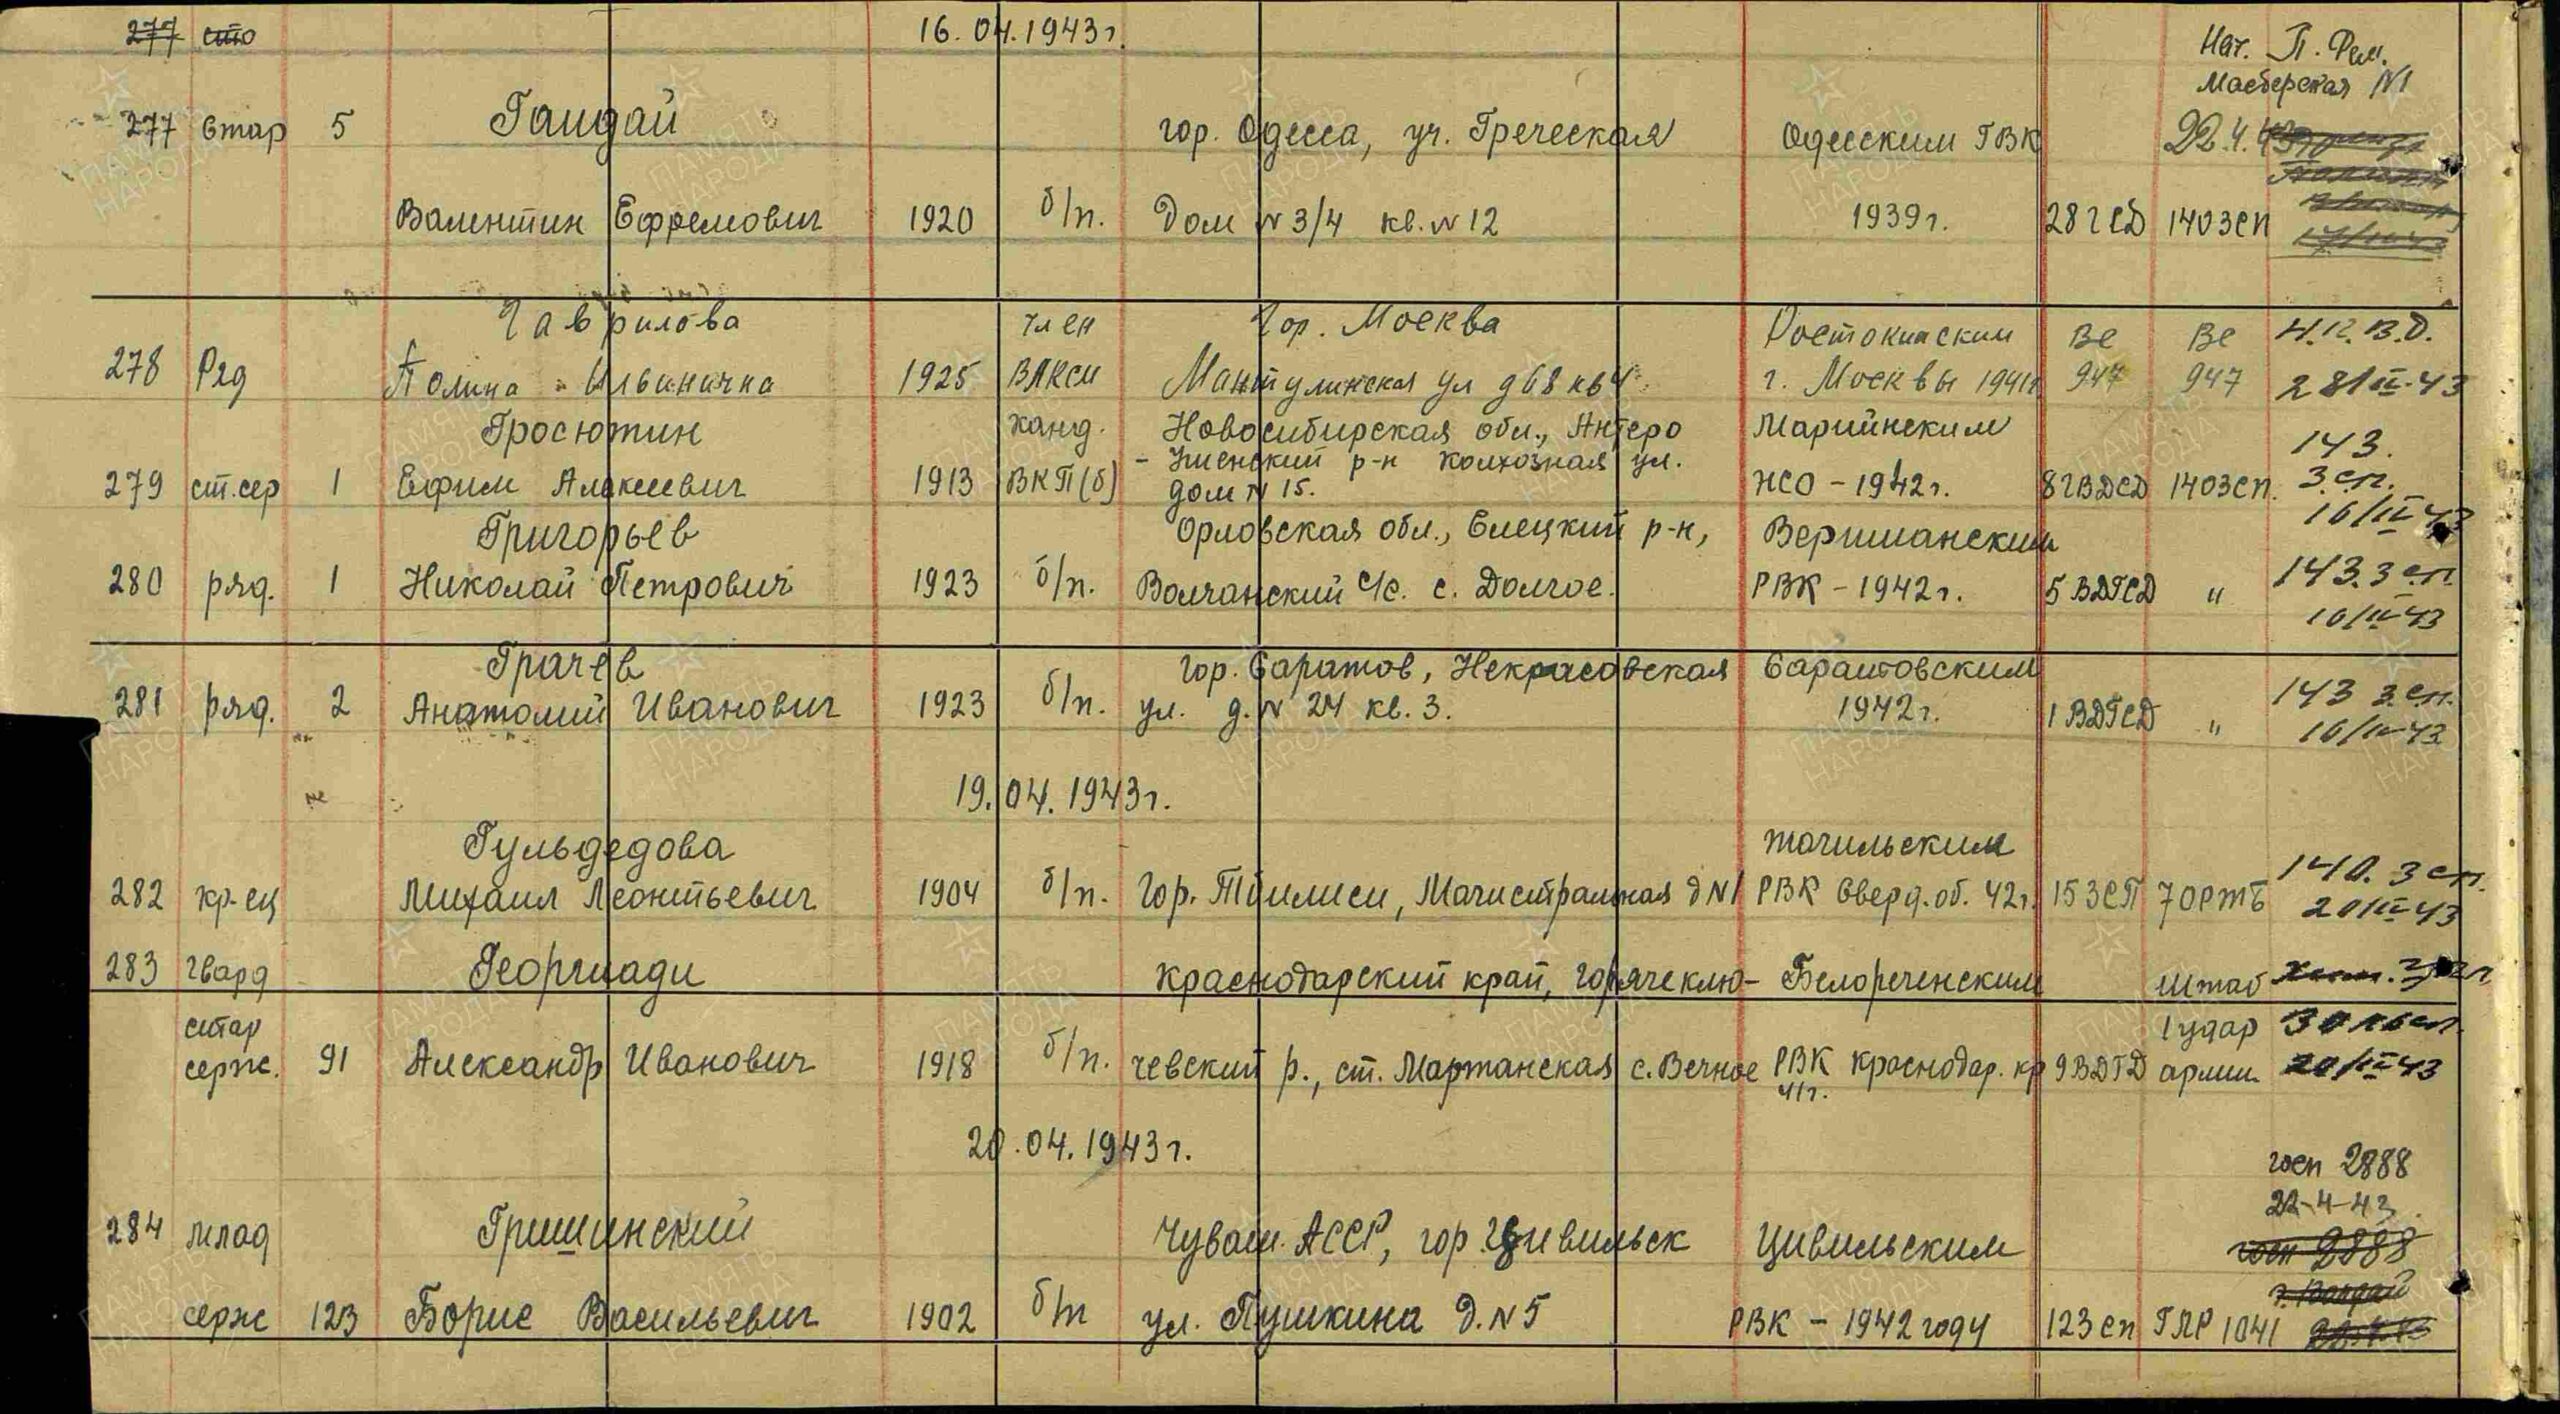 277 сто 16.04.1943г.
Нач. П. Рем.
Мастерская N1
277 Стар 5 Гайдай гор. Одесса, ул. Греческая Одесским ГВК 22.4.43
Валентин Ефремович 1920 б/п. Дом N 3/4 кв. N 12 1939г. 28 ГСД 140 ЗСП
Гаврилова член Гор. Москва Ростокинским Ве Ве Н.П.В.О.
278 Ряд Полина Ильинична 1925 ВЛКСМ Мантулинская ул д 68 кв 4 г. Москвы 1941г 947 947 28/IV-43
Гросютин канд. Новосибирская обл., Анжеро Марийнским 143.
- р-н Колхозная ул.
279 ст.сер 1 Ефим Алексеевич 1913 ВКП(б) дом N 15. НСО - 1942г. 8 ГВДСД 140 ЗСП. З.сп.
16/IV-43
Григорьев Орловская обл., Елецкий р-н,
280 ряд. 1 Николай Петрович 1923 б/п. Волчанский с/с. с. Долгое. РВК - 1942г. 5 ВДГСД " 143. З сп.
16/IV-43
Грачев гор. Саратов, Некрасовская Саратовским
281 ряд. 2 Анатолий Иванович 1923 б/п. ул. д. N 24 кв. 3. 1942г. 1 ВДГСД " 143 З.сп.
16/IV-43
19.04.1943г.
Гульдедова
282 кр-ец Михаил Леонтьевич 1904 б/п. Гор. Тбилиси, Магистральная д N1 РВК Сверд. об. 42г. 15 ЗСП 7 ОРТБ 140. З сп.
20/IV-43
283 гвард Георгиади Краснодарский край, горячеклю- Белореченским Штаб
стар 1 удар
серж. 91 Александр Иванович 1918 б/п. чевский р., ст. Мартанская с. Вечное РВК Краснодар. кр 9 ВДГД армии 20/IV-43
41г.
20.04.1943г.
госп 2888
22-4-43.
284 млад Гришинский Чуваш. АССР, гор. Цивильск Цивильским
госп 2888
серж 123 Борис Васильевич 1902 б/п ул. Пушкина Д. N 5 РВК - 1942 году 123 сп ГЛР 1041